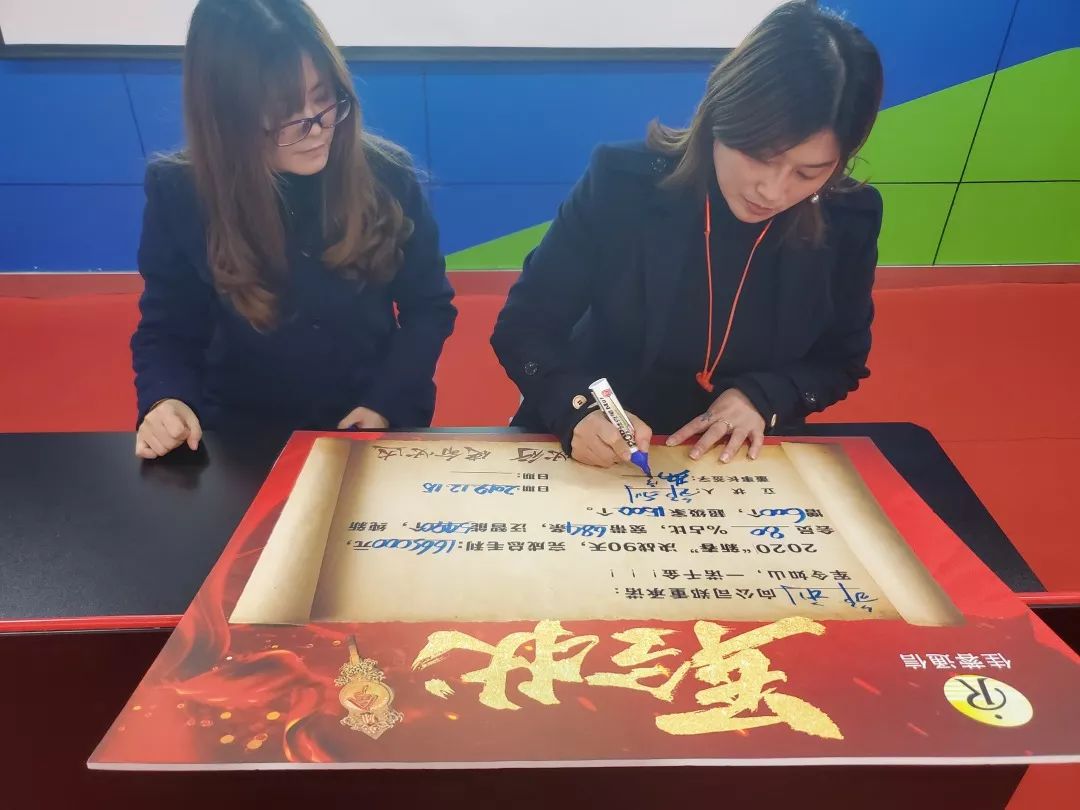 佳蓉通信
军令状
向公司郑重承诺：
军令如山，一诺千金！！！
2020“新春”决战90天，完成总毛利：1665000元，
会员 80 %占比，宽带 684 条，泛智能5400个，纯新
增600个，超级家1500个。
立 状 人： 日期：2019.12.18
董事长签字： 日期：
使命必达